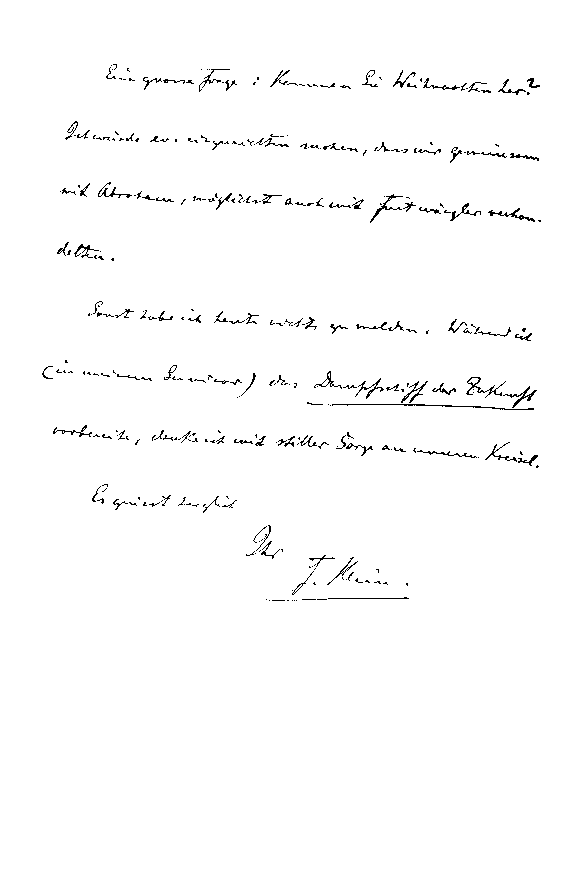 Eine grosse Frage: Kommen Sie Weihnachten her?
Ich würde es einzurichten suchen, dass wir gemeinsam
mit Abraham, möglichst auch mit Furtwängler verhan-
delten.
Sonst habe ich heute nichts zu melden. Während ich
(in meinem Seminar) das Dampfschiff der Zukunft
vorbereite, denke ich mit stiller Sorge an unseren Kreisel.
Es grüsst herzlich
Ihr
F. Klein.